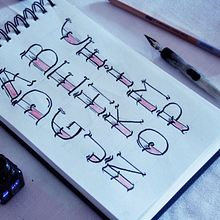 A B C
D E F
G H I
J K L M
N O P